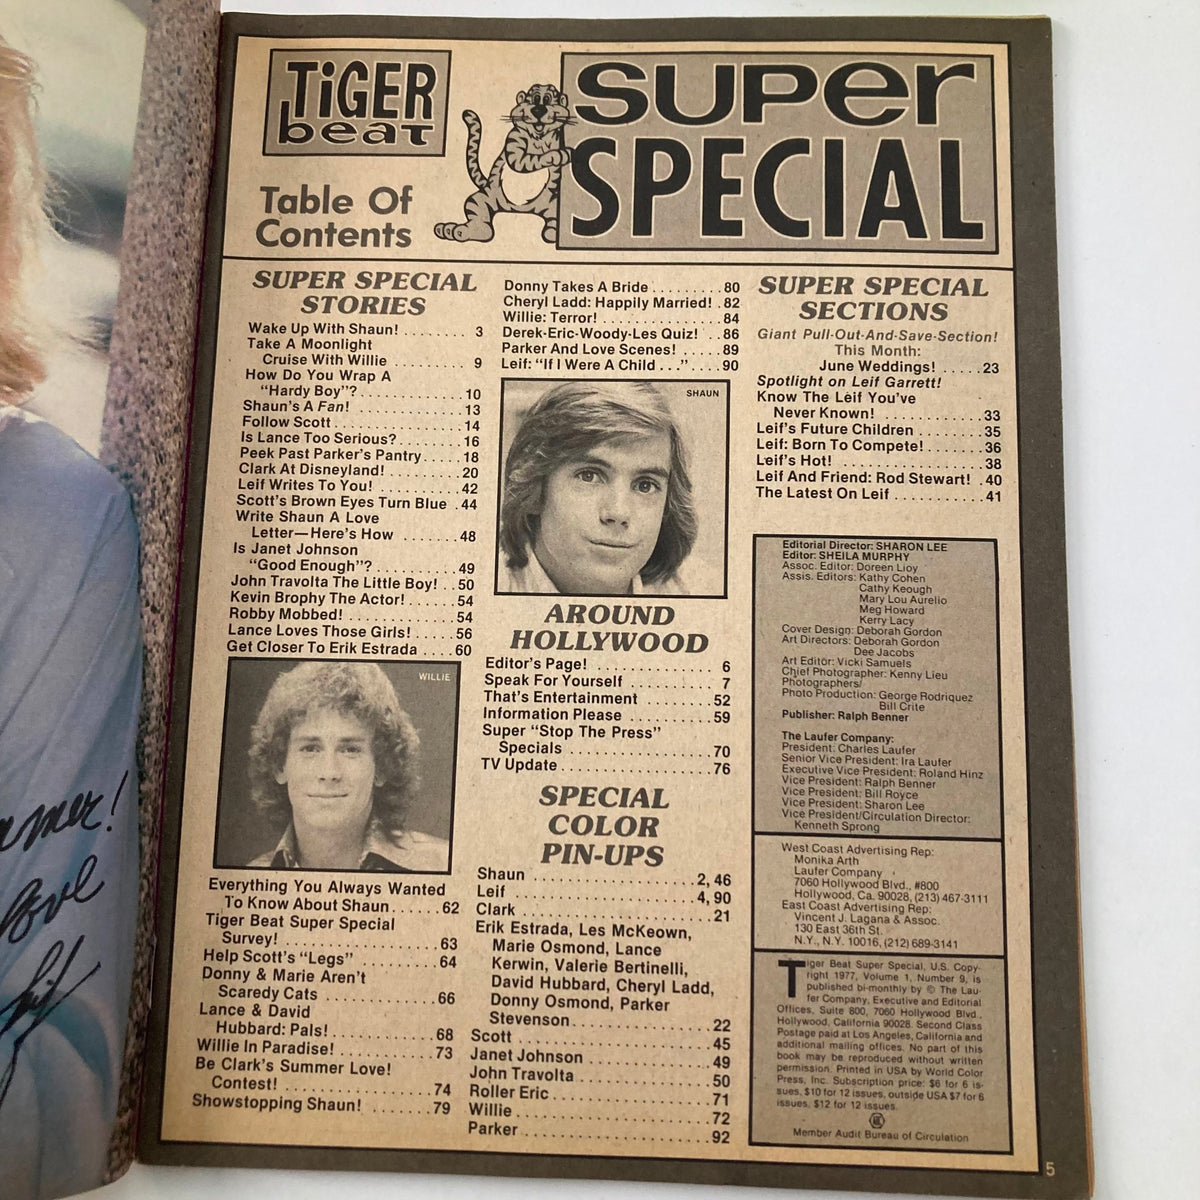 TiGER
beat
SUPer
SPECIAL
Table Of
Contents
SUPER SPECIAL
STORIES
Wake Up With Shaun! ........ 3
Take A Moonlight
Cruise With Willie ........... 9
How Do You Wrap A
"Hardy Boy"? ............. 10
Shaun's A Fan! .............. 13
Follow Scott ................. 14
Is Lance Too Serious? ........ 16
Peek Past Parker's Pantry ..... 18
Clark At Disneyland! .......... 20
Leif Writes To You! ........... 42
Scott's Brown Eyes Turn Blue . 44
Write Shaun A Love
Letter—Here's How ........ 48
Is Janet Johnson
"Good Enough"? ........... 49
John Travolta The Little Boy! .. 50
Kevin Brophy The Actor! ...... 54
Robby Mobbed! .............. 54
Lance Loves Those Girls! ..... 56
Get Closer To Erik Estrada .... 60
WILLIE
Everything You Always Wanted
To Know About Shaun ...... 62
Tiger Beat Super Special
Survey! .................... 63
Help Scott's "Legs" .......... 64
Donny & Marie Aren't
Scaredy Cats .............. 66
Lance & David
Hubbard: Pals! ............. 68
Willie In Paradise! ............ 73
Be Clark's Summer Love!
Contest! .................. 74
Showstopping Shaun! ........ 79
Donny Takes A Bride ......... 80
Cheryl Ladd: Happily Married! . 82
Willie: Terror! ................ 84
Derek-Eric-Woody-Les Quiz! .. 86
Parker And Love Scenes! ..... 89
Leif: "If I Were A Child . . ." .... 90
SHAUN
AROUND
HOLLYWOOD
Editor's Page! ............... 6
Speak For Yourself .......... 7
That's Entertainment ........ 52
Information Please .......... 59
Super "Stop The Press"
Specials ................. 70
TV Update .................. 76
SPECIAL
COLOR
PIN-UPS
Shaun .................... 2, 46
Leif ...................... 4, 90
Clark ....................... 21
Erik Estrada, Les McKeown,
Marie Osmond, Lance
Kerwin, Valerie Bertinelli,
David Hubbard, Cheryl Ladd,
Donny Osmond, Parker
Stevenson ................ 22
Scott ....................... 45
Janet Johnson .............. 49
John Travolta ............... 50
Roller Eric .................. 71
Willie ....................... 72
Parker ...................... 92
SUPER SPECIAL
SECTIONS
Giant Pull-Out-And-Save-Section!
This Month:
June Weddings! ..... 23
Spotlight on Leif Garrett!
Know The Leif You've
Never Known! ............. 33
Leif's Future Children ......... 35
Leif: Born To Compete! ....... 36
Leif's Hot! ................... 38
Leif And Friend: Rod Stewart! . 40
The Latest On Leif ........... 41
Editorial Director: SHARON LEE
Editor: SHEILA MURPHY
Assoc. Editor: Doreen Lioy
Assis. Editors: Kathy Cohen
Cathy Keough
Mary Lou Aurelio
Meg Howard
Kerry Lacy
Cover Design: Deborah Gordon
Art Directors: Deborah Gordon
Dee Jacobs
Art Editor: Vicki Samuels
Chief Photographer: Kenny Lieu
Photographers/
Photo Production: George Rodriquez
Bill Crite
Publisher: Ralph Benner
The Laufer Company:
President: Charles Laufer
Senior Vice President: Ira Laufer
Executive Vice President: Roland Hinz
Vice President: Ralph Benner
Vice President: Bill Royce
Vice President: Sharon Lee
Vice President/Circulation Director:
Kenneth Sprong
West Coast Advertising Rep:
Monika Arth
Laufer Company
7060 Hollywood Blvd., #800
Hollywood, Ca. 90028, (213) 467-3111
East Coast Advertising Rep:
Vincent J. Lagana & Assoc.
130 East 36th St.
N.Y., N.Y. 10016, (212) 689-3141
Tiger Beat Super Special, U.S. Copy-
right 1977, Volume 1, Number 9, is
published bi-monthly by © The Lau-
fer Company, Executive and Editorial
Offices, Suite 800, 7060 Hollywood Blvd.,
Hollywood, California 90028. Second Class
Postage paid at Los Angeles, California and
additional mailing offices. No part of this
book may be reproduced without written
permission. Printed in USA by World Color
Press, Inc. Subscription price: $6 for 6 is-
sues, $10 for 12 issues, outside USA $7 for 6
issues, $12 for 12 issues.
Member Audit Bureau of Circulation
5
Love
Leif